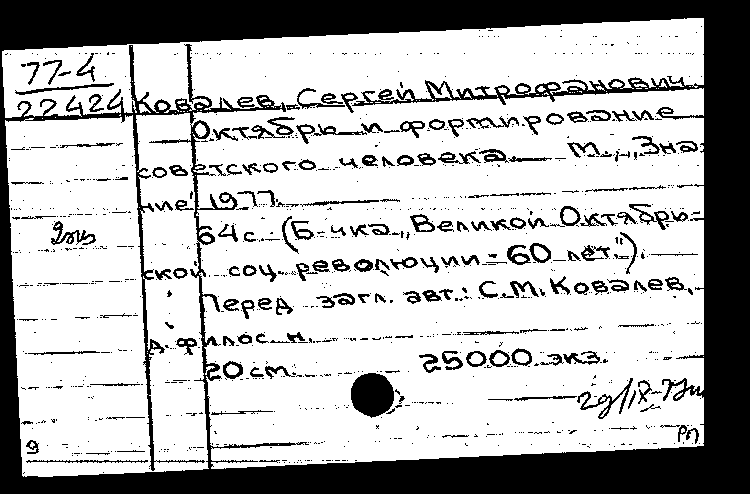 77-4
22424 Ковалев, Сергей Митрофанович.
Октябрь и формирование
советского человека. М., „Зна-
ние", 1977.
64 с. (Б-чка „Великой Октябрь-
ской соц. революции - 60 лет").
Перед загл. авт.: С.М. Ковалев,
д. филос. н.
20 см. 25000 экз.
9